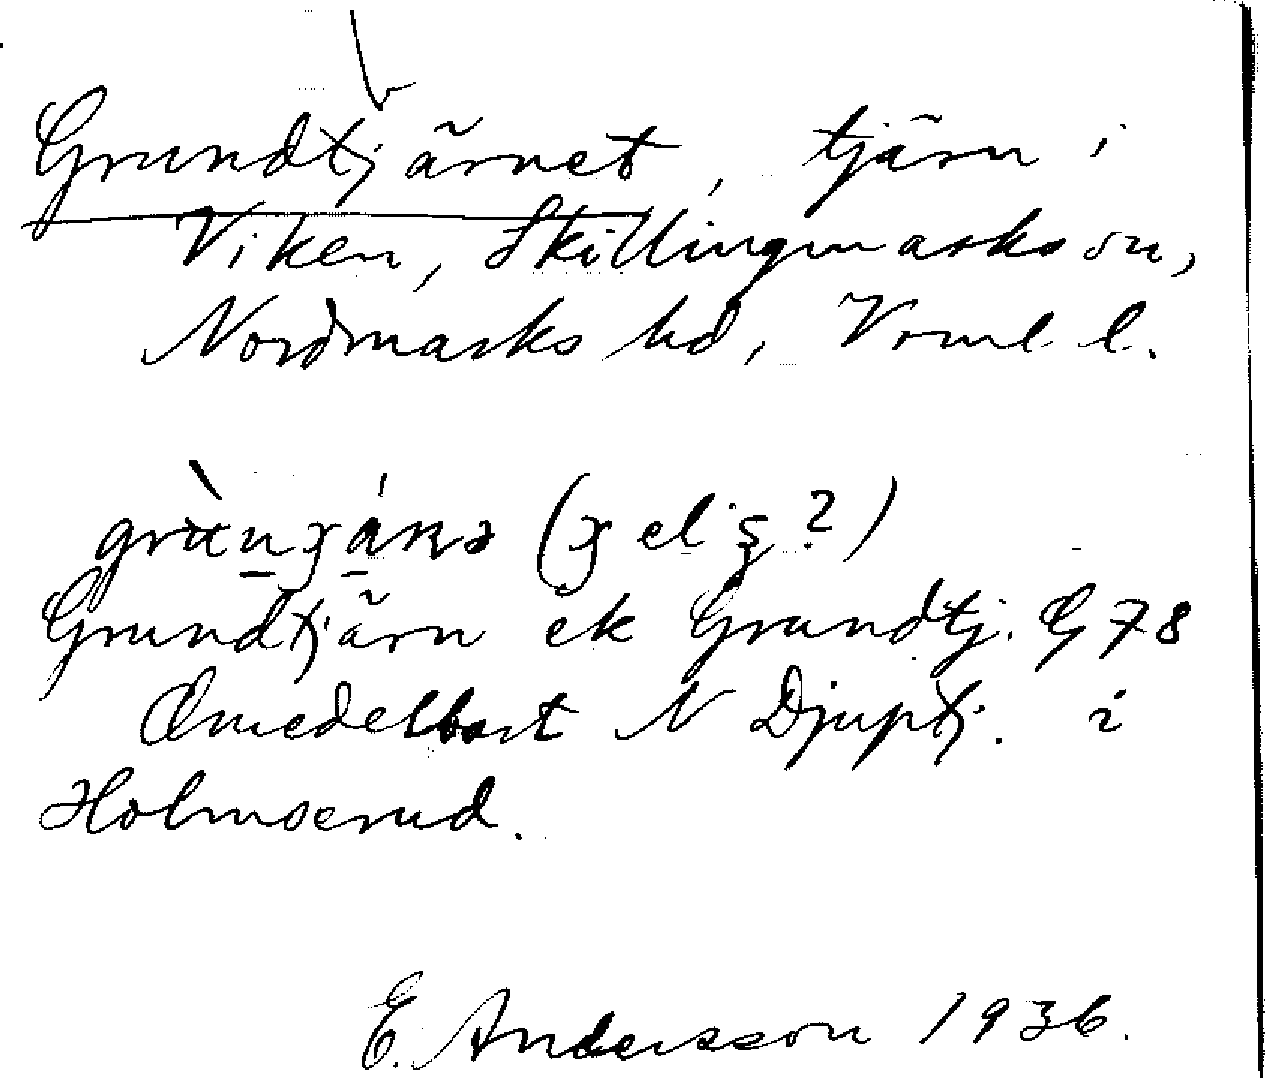 Grundtjärnet, tjärn i
Viken, Skillingmarks sn,
Nordmarks hd, Värml l.
(ɣ el ʂ ?)
Grundtjärn ek Grundtj. G 78
Omedelbart N Djuptj. i
Holmserud.
E. Andersson 1936.